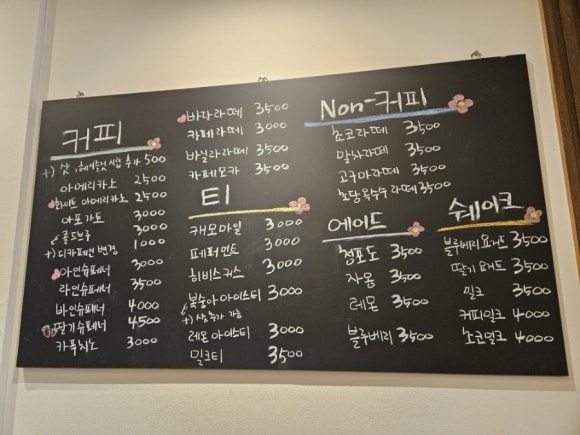 커피
+) 샷, 헤이즐넛 시럽 추가 500
아메리카노 2500
화이트 아메리카노 2500
아포가토 3000
콜드브루 3000
+) 디카페인 변경 1000
아인슈페너 3000
라인슈페너 3500
바인슈페너 4000
딸기슈페너 4500
카푸치노 3000
바닐라라떼 3500
카페라떼 3000
바닐라라떼 3500
카페모카 3500
티
캐모마일 3000
페퍼민트 3000
히비스커스 3000
복숭아 아이스티 3000
+) 샷추가 가능
레몬 아이스티 3000
밀크티 3500
Non-커피
초코라떼 3500
말차라떼 3500
고구마라떼 3500
초당옥수수라떼 3500
에이드
청포도 3500
자몽 3500
레몬 3500
블루베리 3500
쉐이크
블루베리 요거트 3500
딸기 요거트 3500
밀크 3500
커피밀크 4000
초코밀크 4000